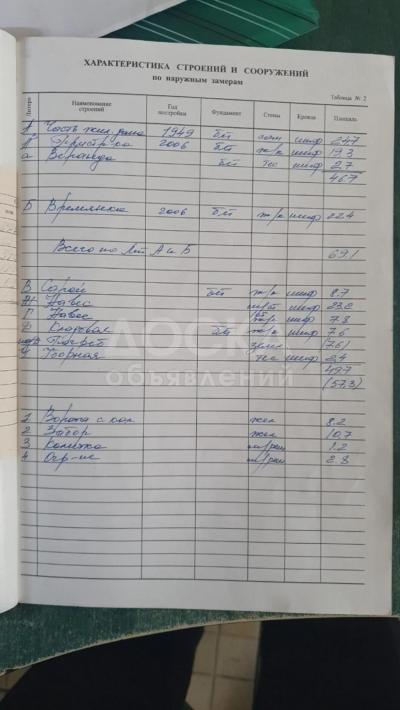 ХАРАКТЕРИСТИКА СТРОЕНИЙ И СООРУЖЕНИЙ
по наружным замерам
Таблица № 2
Литера Наименование строений Год постройки Фундамент Стены Кровля Площадь
Часть жил. дома 1949 бт сам шиф 24.7
2006 бт шиф 19.3
а Веранда бт тес шиф 2.7
46.7
Б Времянка 2006 бт ж/к шиф 22.4
Всего по Лит А и Б 69.1
В Сарай бт ж/к шиф 8.7
Навес шиф
Г Навес шиф 7.3
Кладовая бт ж/к шиф 7.6
(7.6)
Уборная тес шиф 2.4
49.7
(57.3)
1 Ворота с жел 8.2
2 Забор жел 10.7
3 Калитка 1.2
4 Огр-ие 2.8
ЛАЛАФО
объявлений